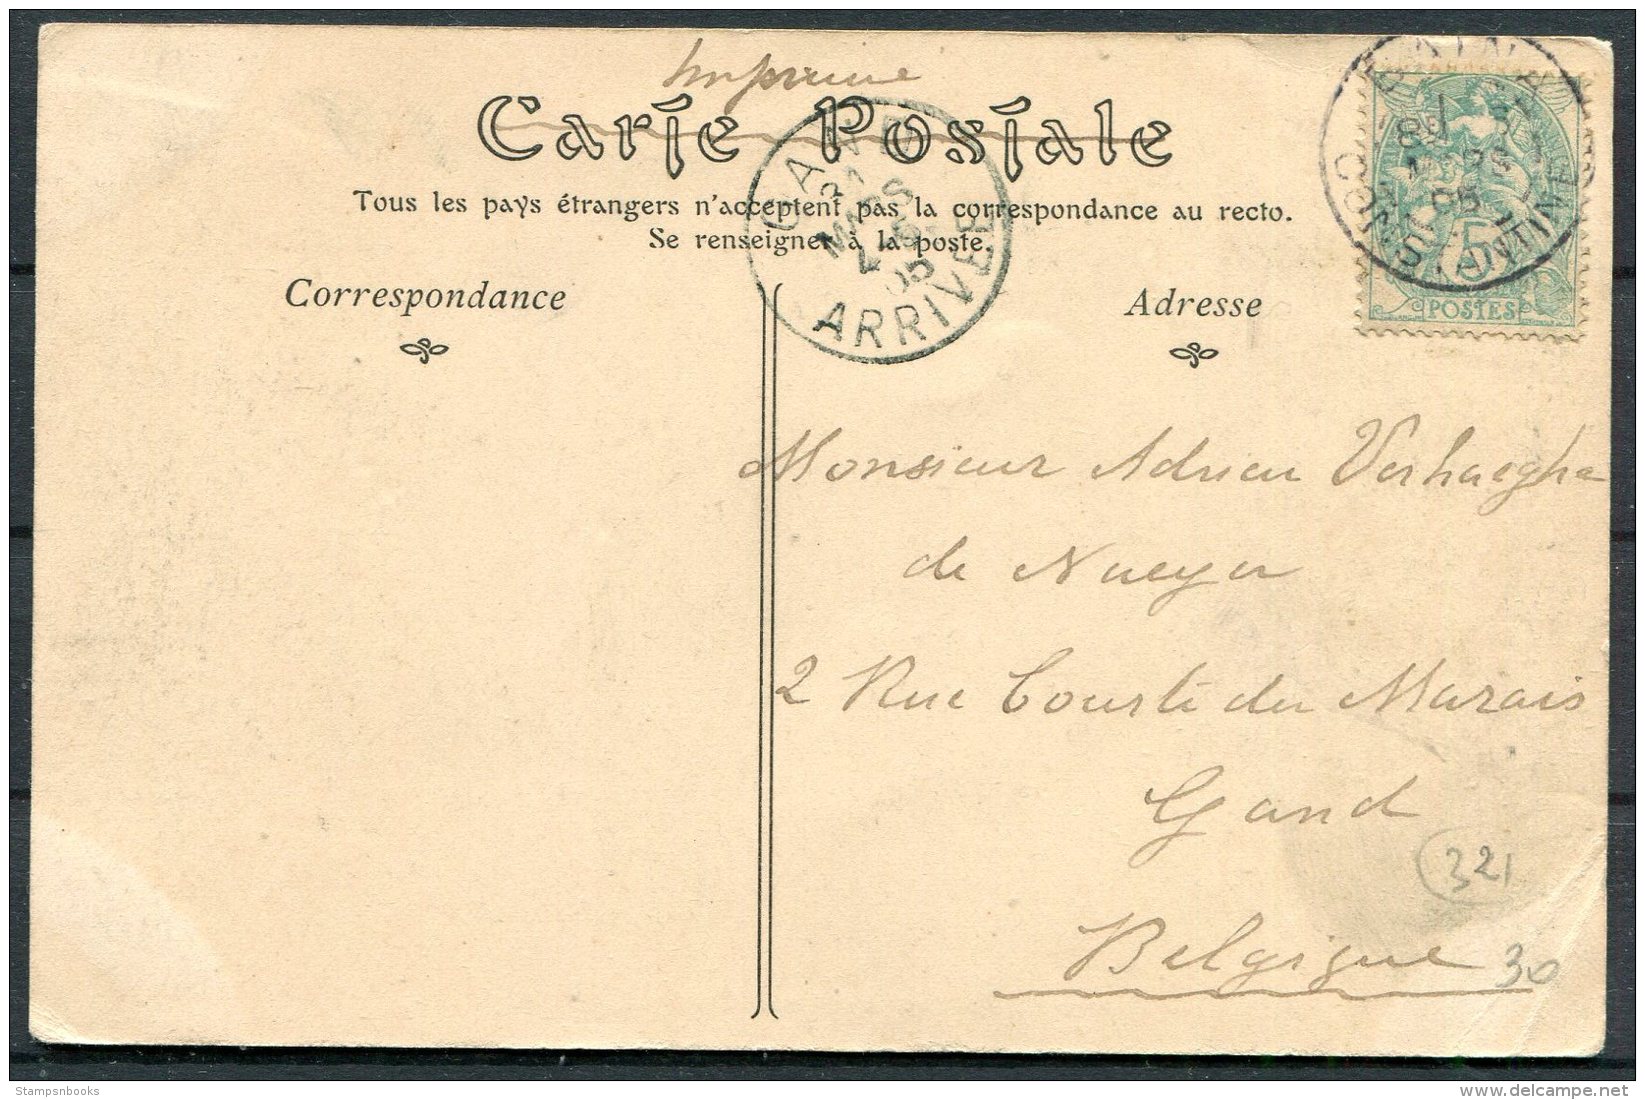 Imprimé
Carte Postale
Tous les pays étrangers n'acceptent pas la correspondance au recto.
Se renseigner à la poste.
Correspondance
Adresse
GAND
MARS
05
ARRIVÉE
MARS
05
CONSTANTINE
5
POSTES
Monsieur Adrien Verhaeghe
de Naeyer
2 Rue Courte du Marais
Gand
Belgique
321
30
Stampsnbooks
www.delcampe.net